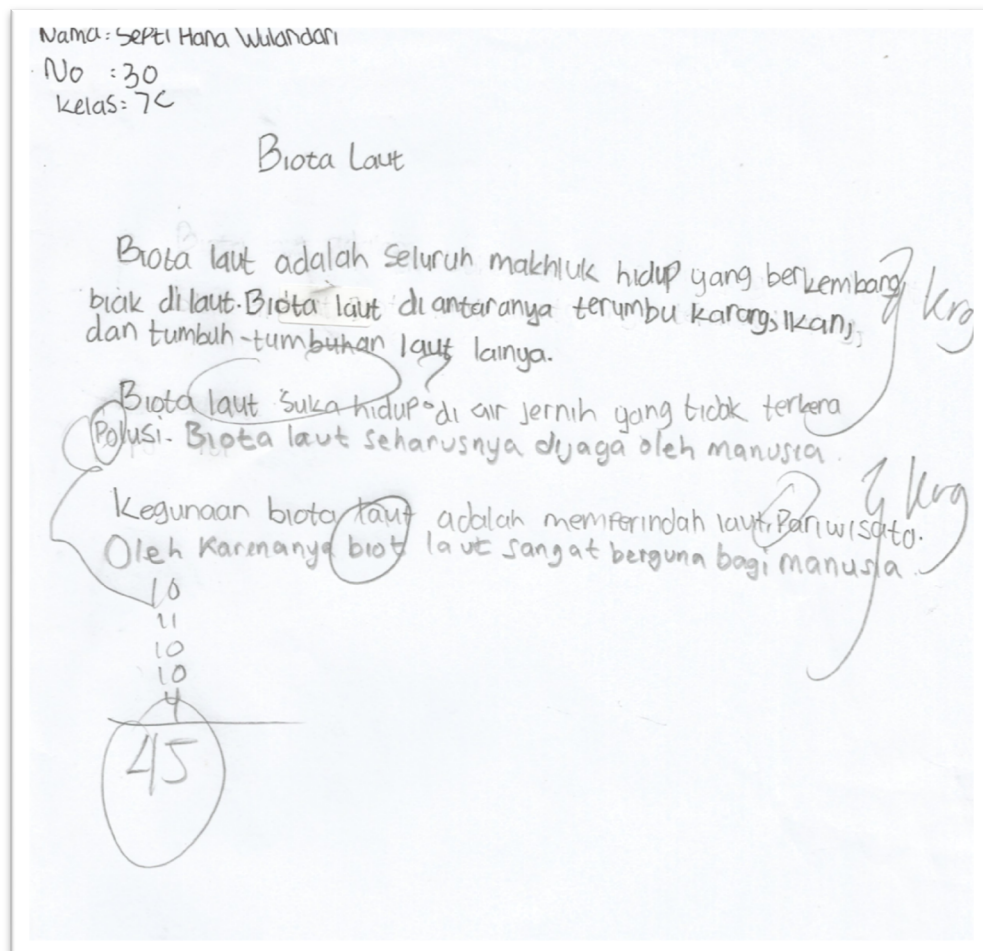 Nama: Septi Hana Wulandari
No : 30
Kelas: 7C
Biota Laut
Biota laut adalah seluruh makhluk hidup yang berkembang
biak di laut. Biota laut di antaranya terumbu karang, ikan,
dan tumbuh-tumbuhan laut lainya.
krg
Biota laut suka hidup di air jernih yang tidak terkena
Polusi. Biota laut seharusnya dijaga oleh manusia.
Kegunaan biota laut adalah memperindah laut, Pariwisata.
Oleh Karenanya biot laut sangat berguna bagi manusia.
krg
10
11
10
10
4
45